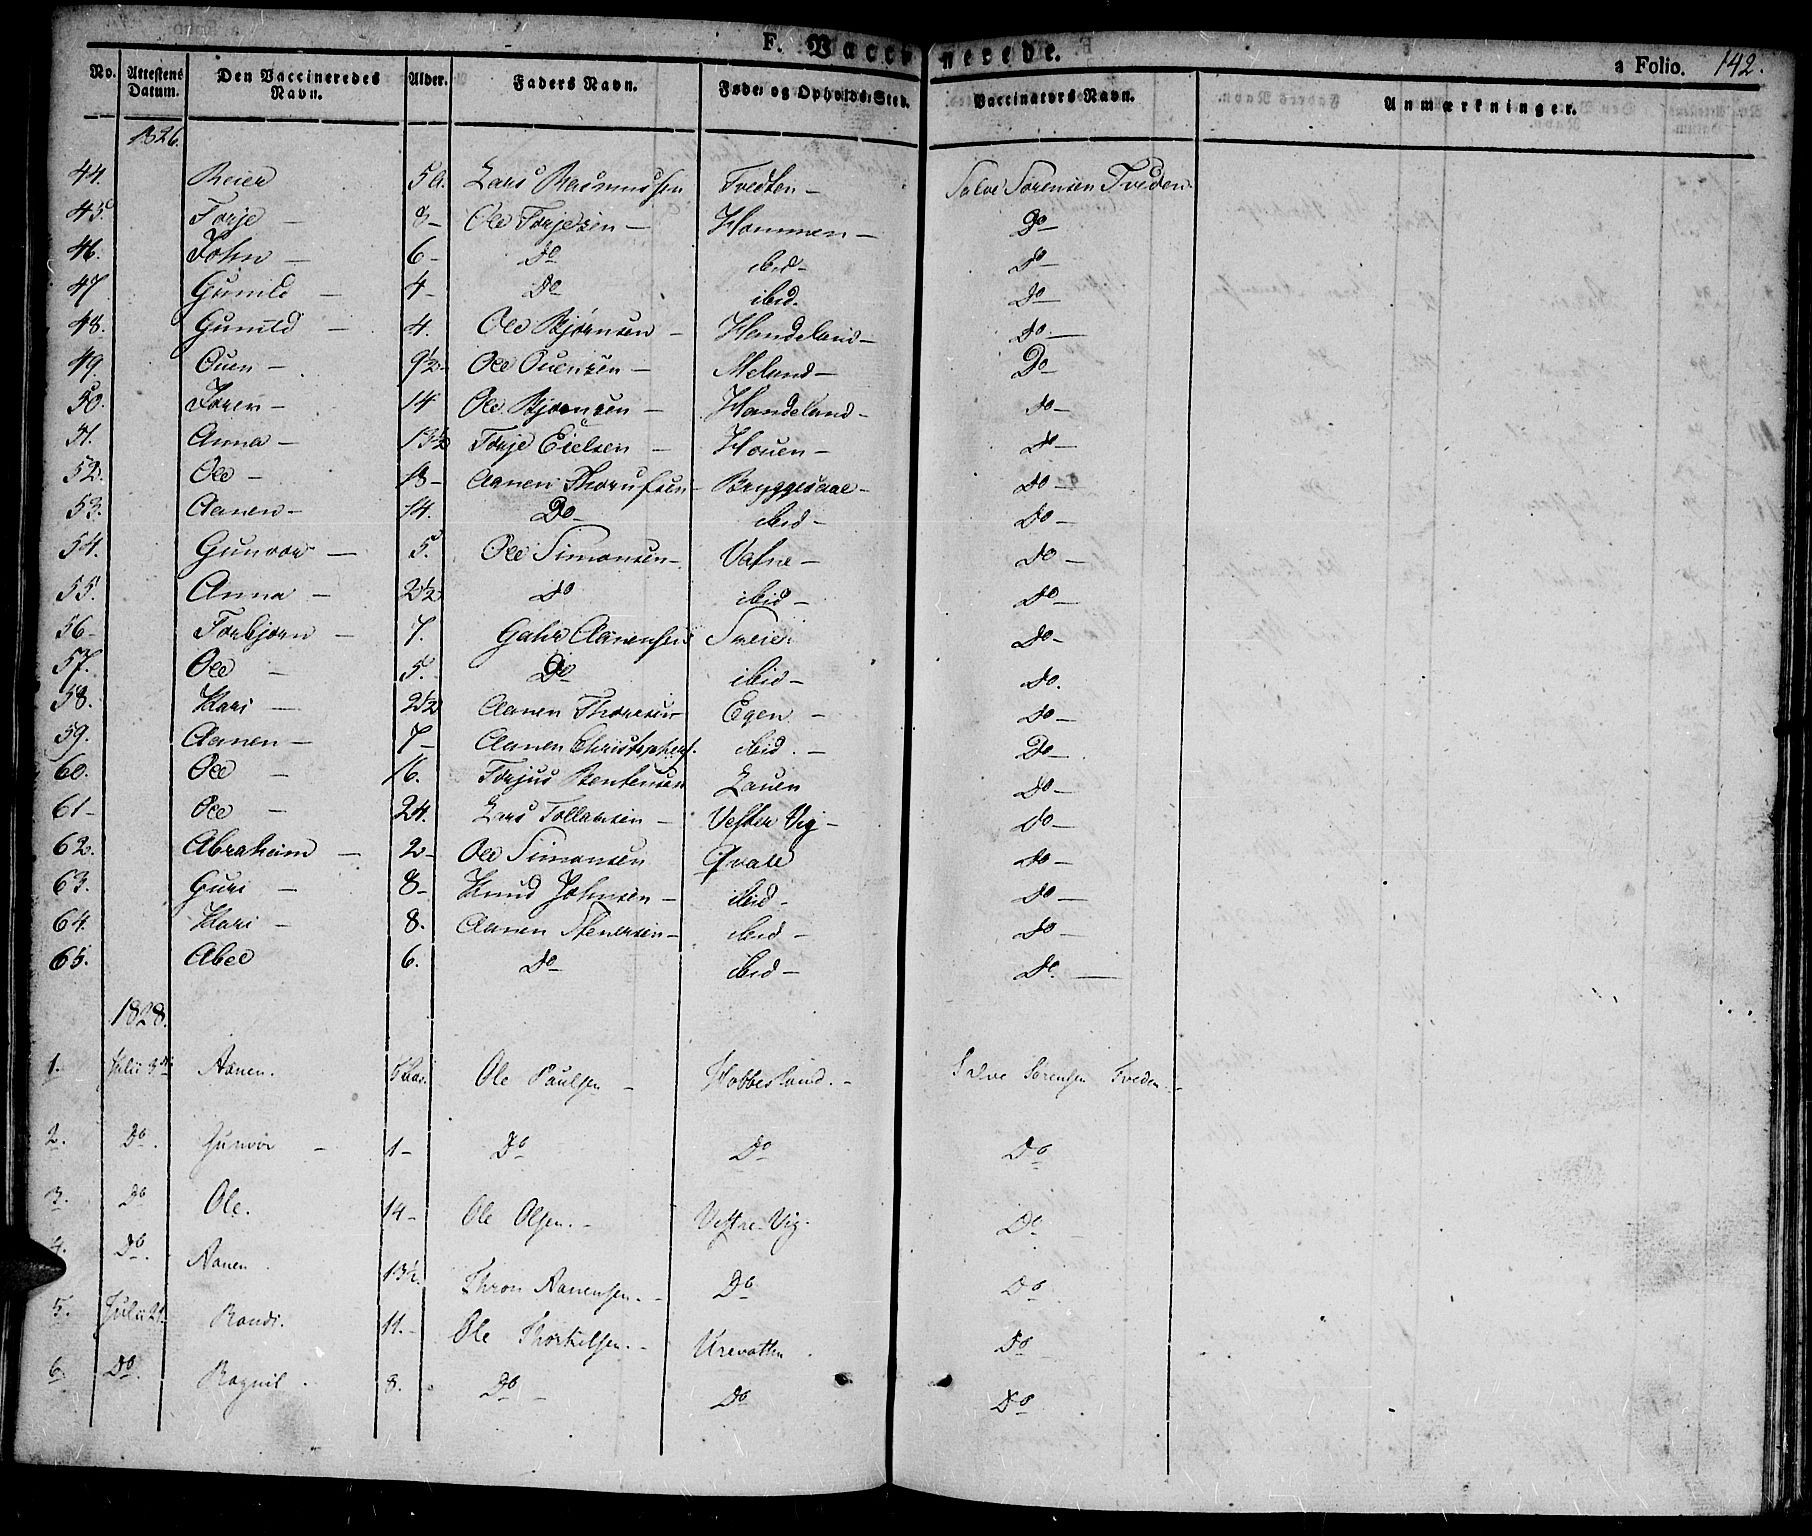 F. Vaccinerede. a Folio. 142.
No. Attestens Datum. Den Vaccineredes Navn. Alder. Faders Navn. Føde- og Opholds-Sted. Vaccinators Navn. Anmærkninger.
1826.
44. Reier 5 a. Lars Rasmussen Tvedten – Salve Sørensen Tveden
45. Torje – 8 – Ole Torjesen – Hommen – Do –
46. John – 6 – Do ibid – Do –
47. Gunild – 4 – Do ibid. Do –
48. Gunild – 4. Ole Bjørnsen – Handeland – Do –
49. Ouen – 9½ – Ole Ouensen – Meland – Do –
50. Joren – 14 Ole Bjørnsen – Handeland – Do –
51. Anna – 13½ Torje Eielsen – Houen – Do –
52. Ole – 18 – Aanen Thorufsen – Bryggesaae – Do –
53. Aanen – 14. Do – ibid – Do –
54. Gunvor – 5. Ole Simonsen – Vatne – Do –
55. Anna – 2½ Do ibid – Do –
56 – Torbjørn – 7. Gahr Aanensen Do –
57. Ole – 5. Do ibid – Do.
58. Kari – 2½ Aanen Thorsen Egen – Do –
59. Aanen – 7 – Aanen Christophers. ibid. – Do –
60. Ole – 16. Torjus Bentensen Lauen Do –
61 – Ole – 24. Lars Tollavsen – Vester Vig – Do –
62. Abraham – 2 – Ole Simonsen Qvale Do –
63. Guri – 8 – Knud Johnsen – ibid – Do –
64. Kari – 8. Aanen Stenersen – ibid – Do –
65. Abel 6. Do – ibid – Do. –
1828.
1. Julii 3die Aanen. Ole Paulsen – Hobbesland. – Salve Sørensen Tveden –
2. Do. Gunvor – 1 – Do Do Do
3. Do Ole. 14 – Ole Olsen. – Vestre Vig. Do
4. Do. Aanen. 13½. Thron Aanensen. – Do Do
5. Julii 21 Randi. 11. – Ole Thorkelsen. – Urevatten. Do
6. Do. Ragnil. 8. Do – Do Do